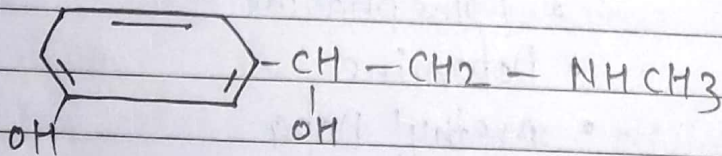 -CH-CH2-NHCH3
OH OH